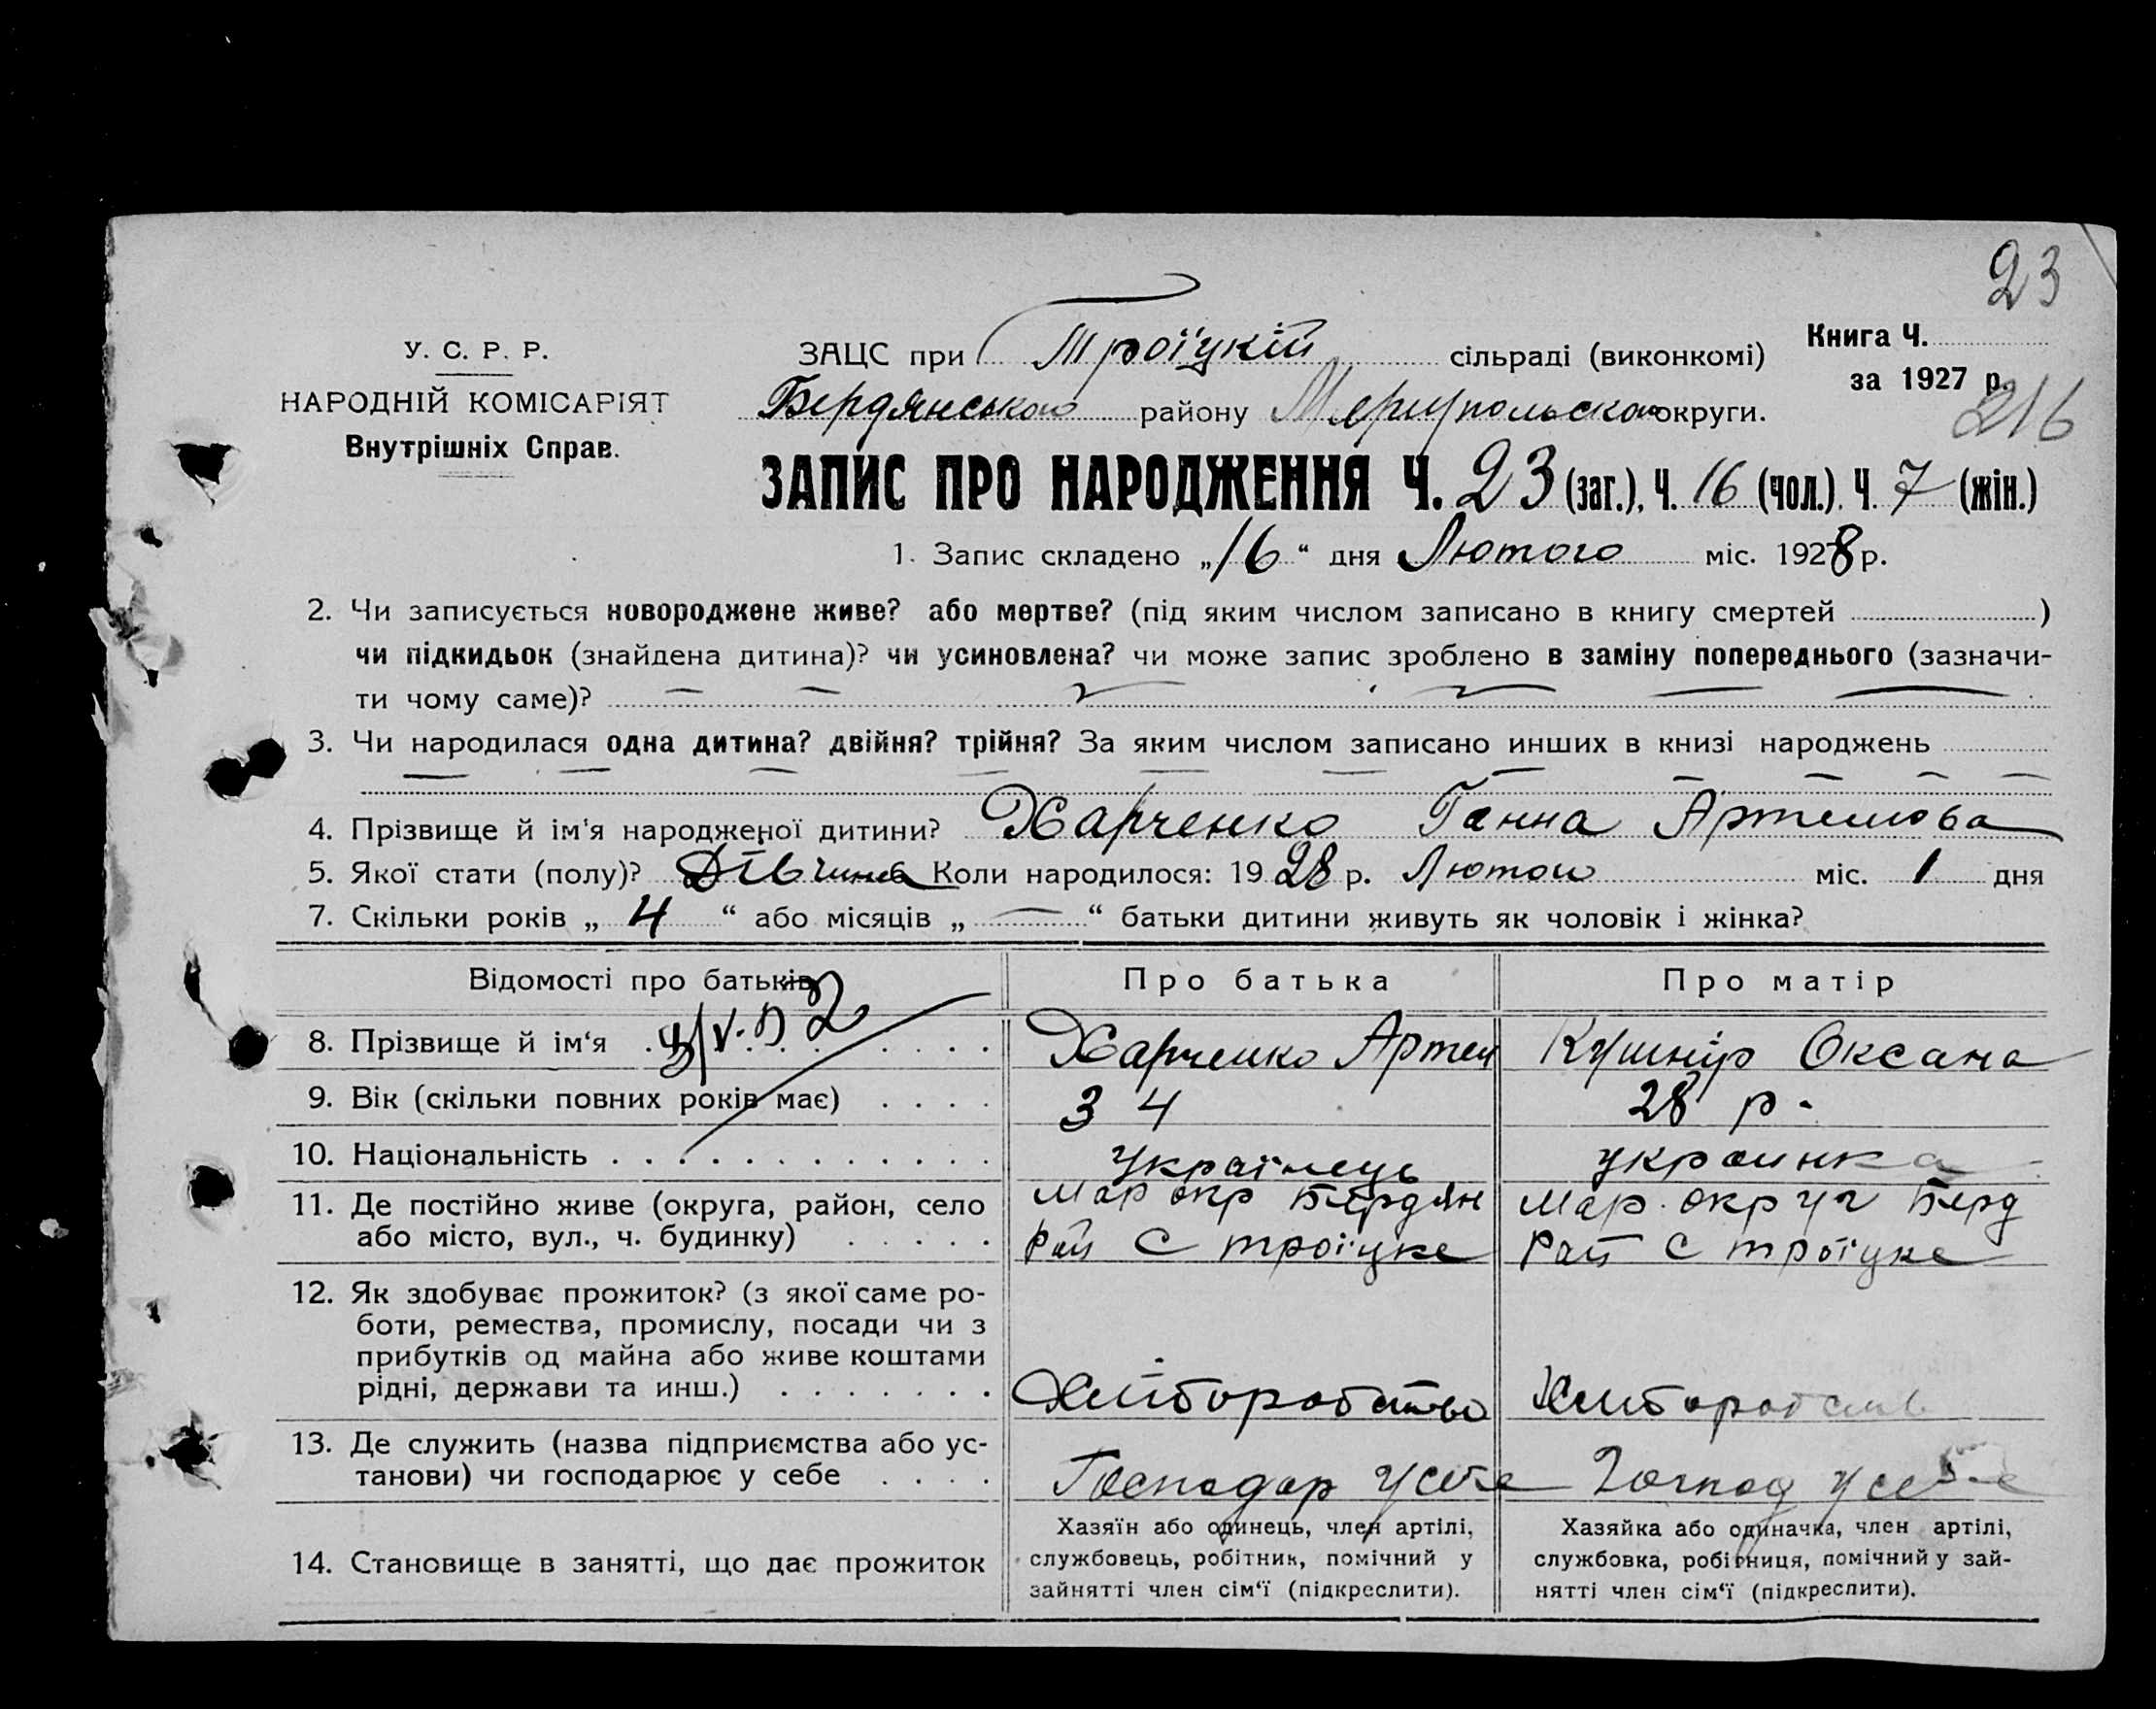 23
У. С. Р. Р.
НАРОДНІЙ КОМІСАРІЯТ
Внутрішніх Справ.
ЗАЦС при Троїцкій сільраді (виконкомі)
Книга Ч.
за 1927 р.
216
Бердянського району Мариупольского округи.
ЗАПИС ПРО НАРОДЖЕННЯ Ч. 23 (заг.), Ч. 16 (чол.). Ч. 7 (жін.)
1. Запис складено „16“ дня Лютого міс. 1928 р.
2. Чи записується новороджене живе? або мертве? (під яким числом записано в книгу смертей )
чи підкидьок (знайдена дитина)? чи усиновлена? чи може запис зроблено в заміну попереднього (зазначи-
ти чому саме)?
3. Чи народилася одна дитина? двійня? трійня? За яким числом записано инших в книзі народжень
4. Прізвище й ім'я народженої дитини? Харченко Ганна Артемова
5. Якої стати (полу)? Дівчина Коли народилося: 1928 р. Лютого міс. 1 дня
7. Скільки років „ 4 “ або місяців „ — “ батьки дитини живуть як чоловік і жінка?
Відомості про батьків Про батька Про матір
8. Прізвище й ім‘я Харченко Артем Кушнір Оксана
9. Вік (скільки повних років має) 34 28 р.
10. Національність Українець украинка
11. Де постійно живе (округа, район, село Мар окр Бердян Мар. округ Берд
або місто, вул., ч. будинку) Рай С троїцке Рай С троїцке
12. Як здобуває прожиток? (з якої саме ро-
боти, ремества, промислу, посади чи з
прибутків од майна або живе коштами
рідні, держави та инш.) Хліборобство
13. Де служить (назва підприємства або ус-
танови) чи господарює у себе Господар у себе Господ у себе
14. Становище в занятті, що дає прожиток
Хазяїн або одинець, член артілі,
службовець, робітник, помічний у
зайнятті член сім‘ї (підкреслити).
Хазяйка або одиначка, член артілі,
службовка, робітниця, помічний у зай-
нятті член сім‘ї (підкреслити).